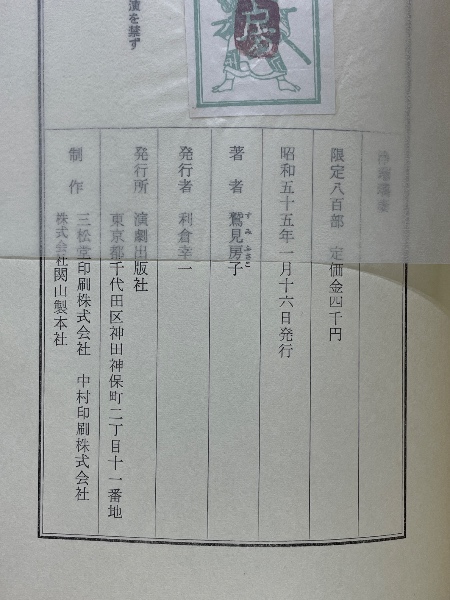 限定八百部　定価金四千円
昭和五十五年一月十六日発行
著　者　鷲見房子
すみ　ふさこ
発行者　利倉幸一
発行所　演劇出版社
東京都千代田区神田神保町二丁目十一番地
制　作　三松堂印刷株式会社　中村印刷株式会社
株式会社関山製本社
演を禁ず